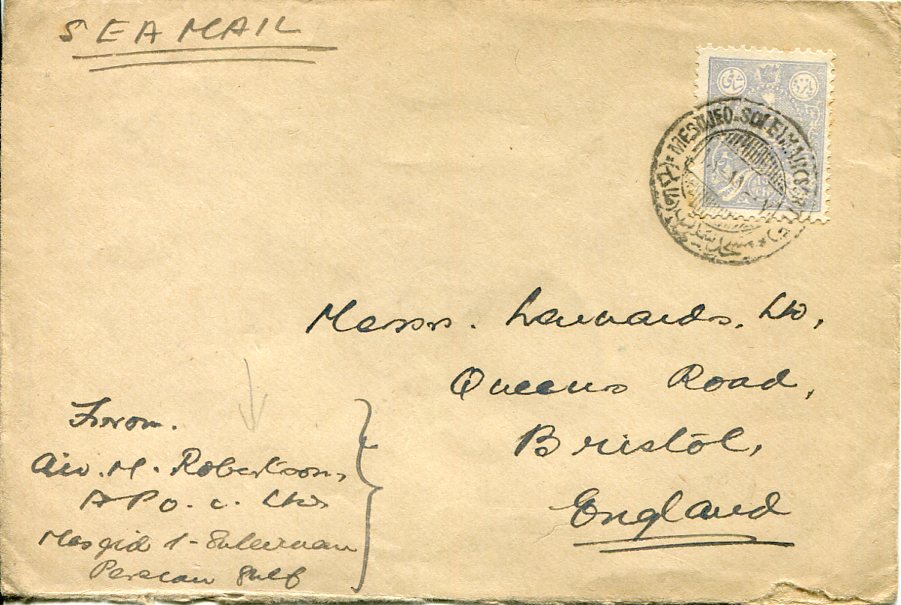 SEA MAIL
MESDJED-SOLEIMAN
Messrs. Ltd,
Queens Road,
Bristol,
England
From.
M. Robertson,
A P O. C. Ltd
Masjid-i-Suleiman
Persian Gulf